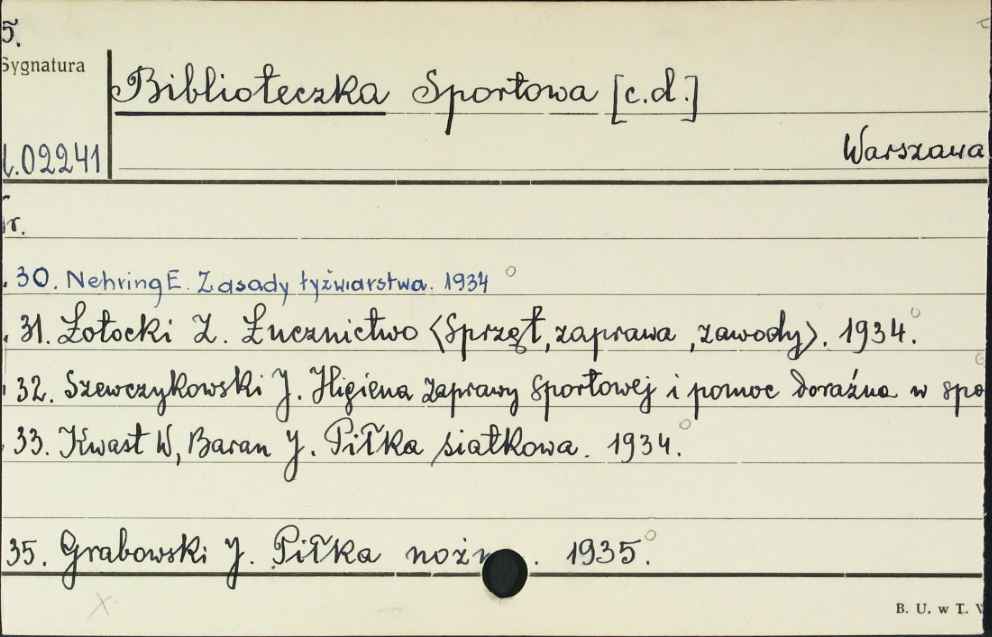 5.
Sygnatura
Biblioteczka Sportowa [c.d.]
02241
Warszawa
30. Nehring E. Zasady łyżwiarstwa. 1934
31. Łotocki Z. Łucznictwo (Sprzęt, zaprawa, zawody). 1934.
32. Szewczykowski J. Higiena zaprawy sportowej i pomoc doraźna w spo
33. Kwast W, Baran J. Piłka siatkowa. 1934.
35. Grabowski J. Piłka nożn . 1935.
B. U. w T.